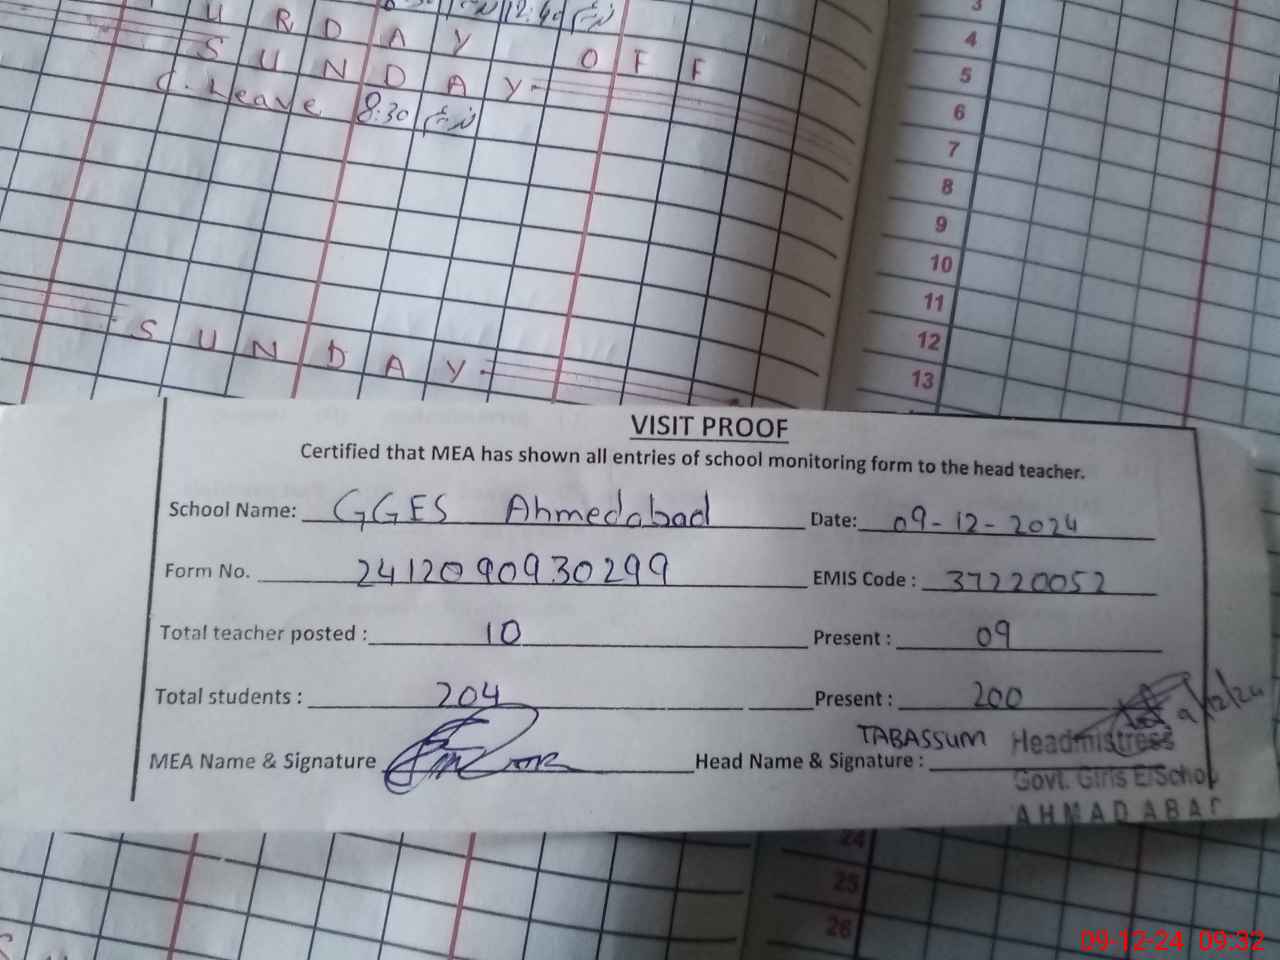 12:40
U R D A Y O F F
S U N D A Y
C. Leave 8:30
S U N D A Y
3
4
5
6
7
8
9
10
11
12
13
VISIT PROOF
Certified that MEA has shown all entries of school monitoring form to the head teacher.
School Name: GGES Ahmedabad Date: 09-12-2024
Form No. 2412090930299 EMIS Code : 37220052
Total teacher posted : 10 Present : 09
Total students : 204 Present : 200
9/12/24
MEA Name & Signature Head Name & Signature : TABASSUM
Headmistress
Govt. Girls E/School
AHMADABAD
24
25
26
09-12-24 09:32